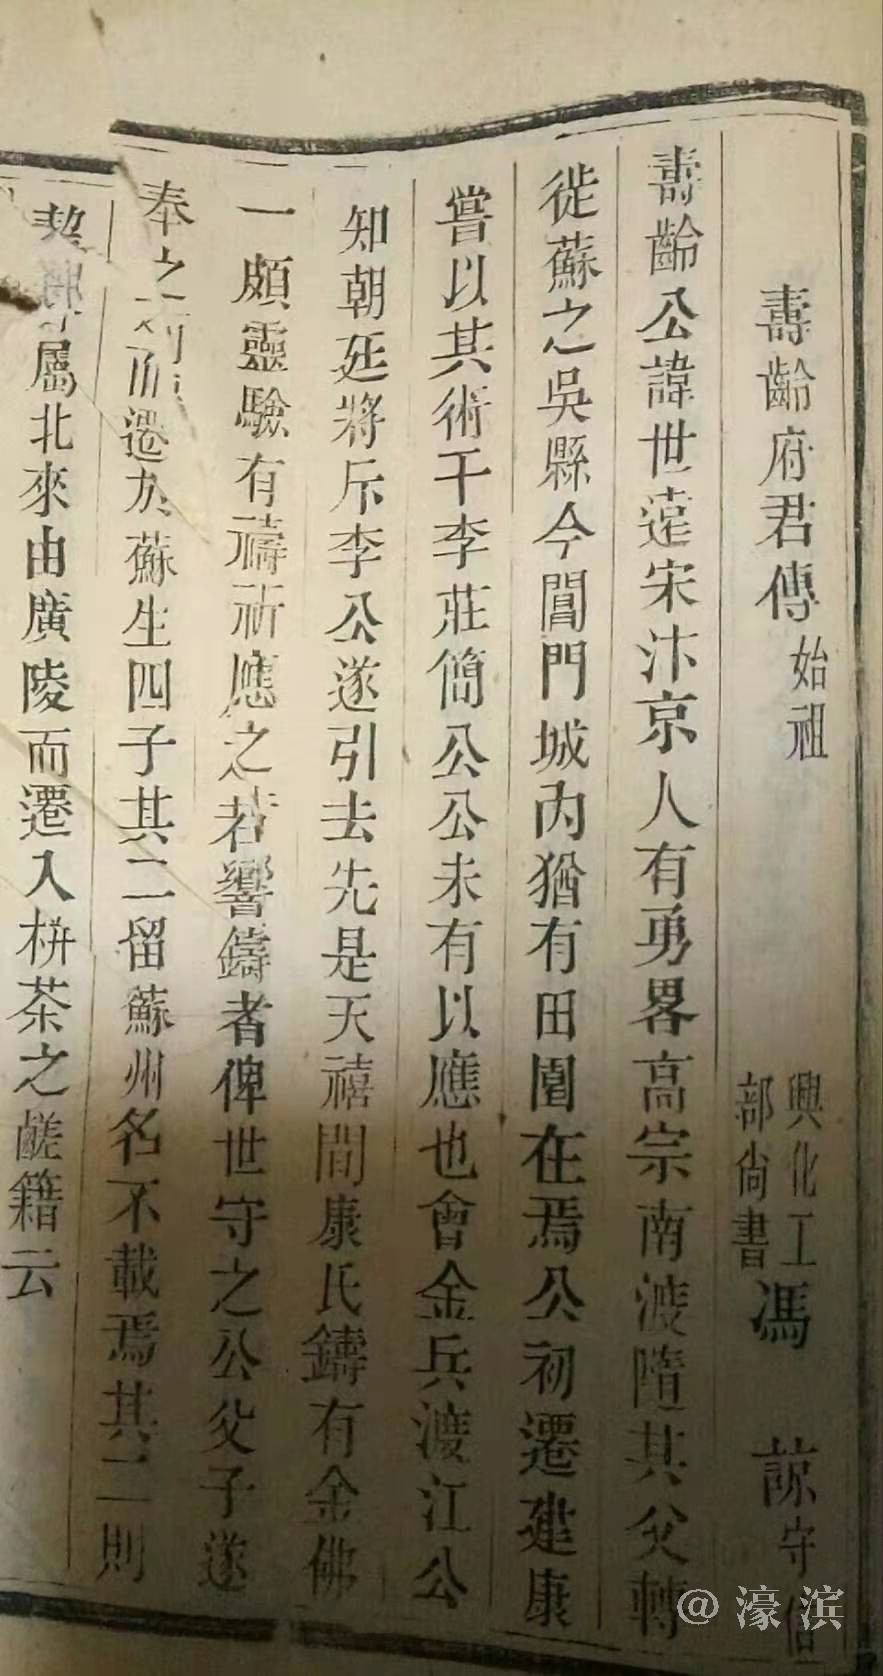 壽齡府君傳 始祖 興化工部尚書馮 諒守信
壽齡公諱世蓬宋汴京人有勇畧高宗南渡隨其父轉
徙蘇之吳縣今閶門城內猶有田園在焉公初遷建康
嘗以其術干李莊簡公公未有以應也會金兵渡江公
知朝廷將斥李公遂引去先是天禧間康氏鑄有金佛
一頗靈驗有禱祈應之若響鑄者俾世守之公父子遂
奉之而遷於蘇生四子其二留蘇州名不載焉其二則
挈屬北來由廣陵而遷入栟茶之鹺籍云
@濠滨